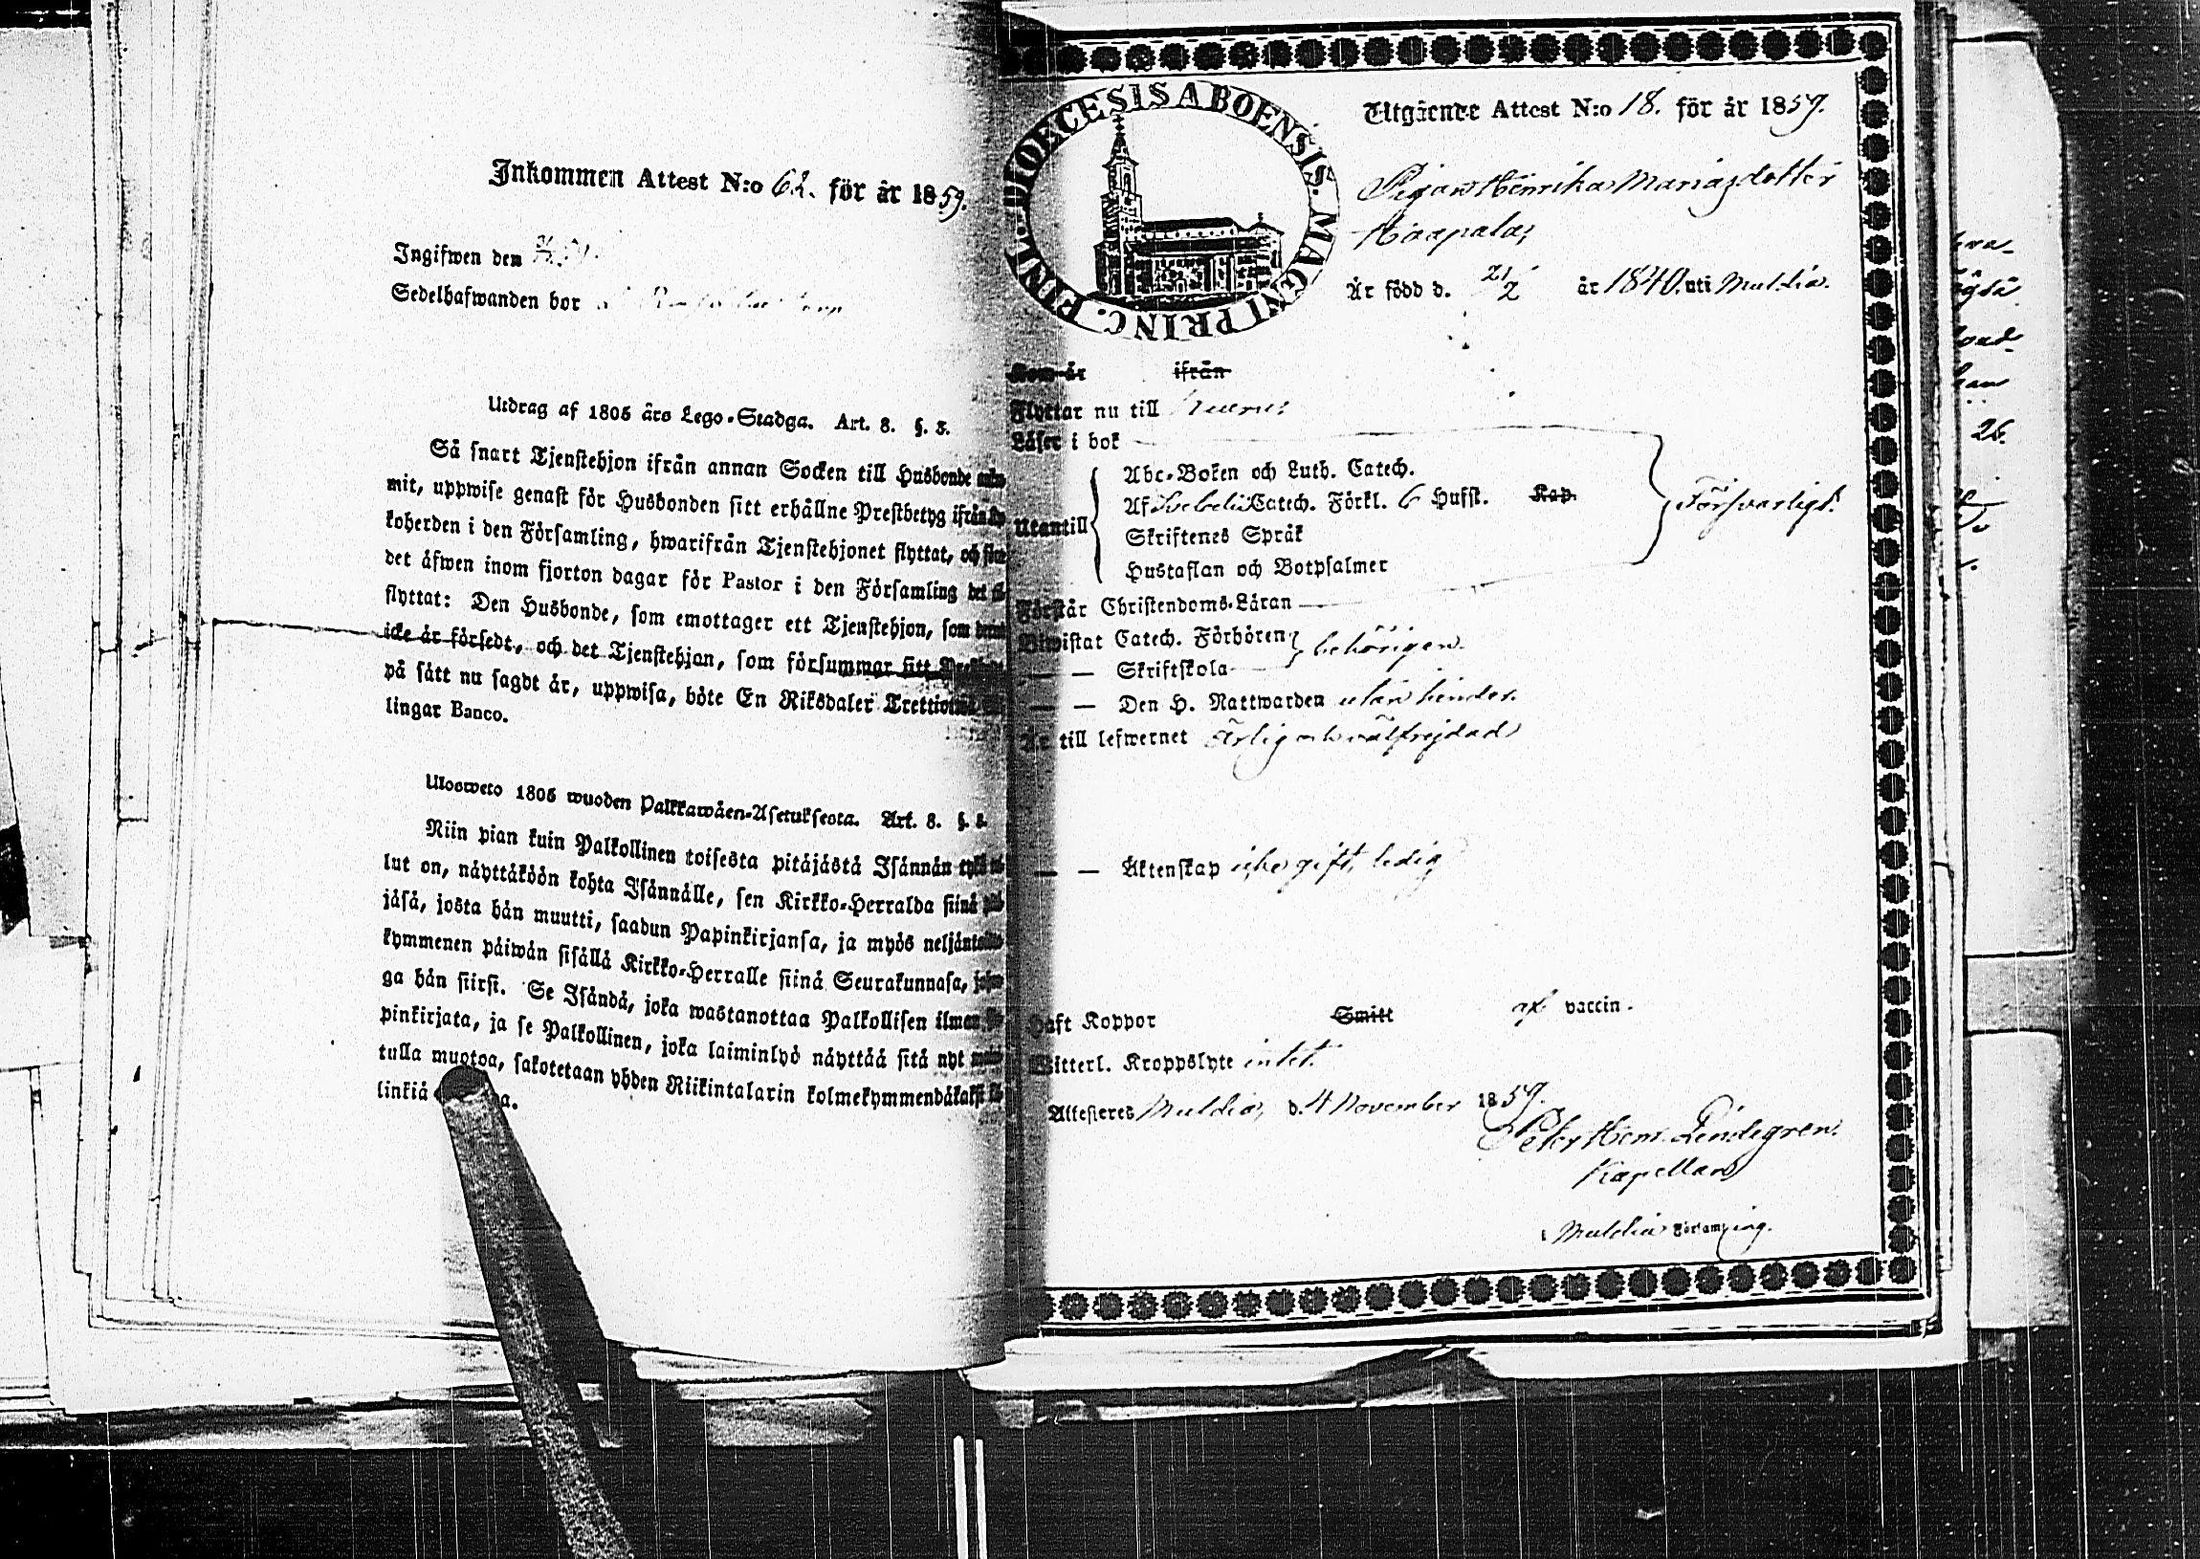 Inkommen Attest N:o 62. för år 1859.
Ingifwen den
Sedelhafwanden bor
Utdrag af 1805 års Lego-Stadga. Art. 8. §. 3.
Så snart Tjenstehjon ifrån annan Socken till Husbonde
mit, uppwise genast för Husbonden sitt erhållne Prestbetyg ifrån
koherden i den Församling, hwarifrån Tjenstehjonet flyttat, och
det äfwen inom fjorton dagar för Pastor i den Församling det
flyttat: Den Husbonde, som emottager ett Tjenstehjon, som
icke är försedt, och det Tjenstehjon, som försummar sitt
på sätt nu sagdt är, uppwisa, böte En Riksdaler
lingar Banco.
Ulosweto 1805 wuoden Palkkawäen-Asetuksesta. Art. 8. §. 3.
Niin pian kuin Palkollinen toisesta pitäjästä Isännän tykö
lut on, näyttäköön kohta Isännälle, sen Kirkko-Herralda siinä
jäsä, josta hän muutti, saadun Papinkirjansa, ja myös
kymmenen päiwän sisällä Kirkko-Herralle siinä Seurakunnasa,
ga hän siirsi. Se Isändä, joka wastanottaa Palkollisen ilman
pinkirjata, ja se Palkollinen, joka laiminlyö näyttää sitä nyt
tulla muotoa, sakotetaan yhden Riikintalarin kolmekymmendäkaksi
linkiä
FINL. DIOECESIS ABOENSIS. MAGNI PRINC.
Utgående Attest N:o 18. för år 1859.
Pigan Henrika Mariasdotter
Haapala,
Är född d. 21/2 år 1840. uti Muldia.
Kom år ifrån
Flyttar nu till
Läser i bok
Abc-Boken och Luth. Catech.
Af Svebelii Catech. Förkl. 6 Hufst. Kap.
Utantill
Skriftenes Språk
Hustaflan och Botpsalmer
Försvarligt.
Förstår Christendoms-Läran
Biwistat Catech. Förhören
— — Skriftskola
behörigen.
— — Den H. Nattwarden utan hinder.
Är till lefwernet ärlig och välfrejdad
— — Äktenskap icke gift, ledig
Haft Koppor Smitt af vaccin.
Witterl. Kroppslyte intet.
Attesteres Muldia, d. 4 November 1859.
Peter Henr. Lindegren.
Kapellan
i Muldia Församling.
26.